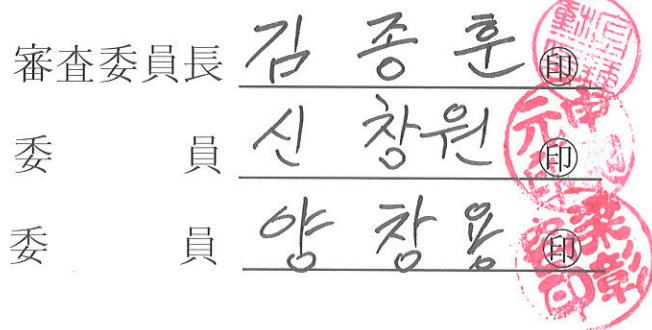 審査委員長 김 종 훈 ㊞
委 員 신 창 원 ㊞
委 員 양 창 용 ㊞